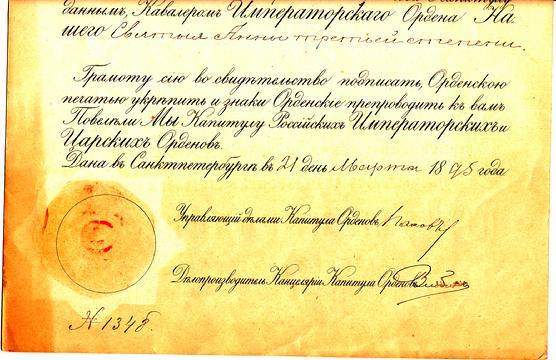 даннымъ, Кавалеромъ Императорскаго Ордена На
шего Святыя Анны третьей степени.
Грамоту сію во свидѣтельство подписать, Орденскою
печатью укрѣпить и знаки Орденскіе препроводить къ вамъ
Повелѣли Мы Капитулу Россійскихъ Императорскихъ и
Царскихъ Орденовъ.
Дана въ Санктпетербургѣ въ 21 день Марта 1895 года
Управляющій дѣлами Капитула Орденовъ
Дѣлопроизводитель Канцеляріи Капитула Орденовъ
№ 1348.